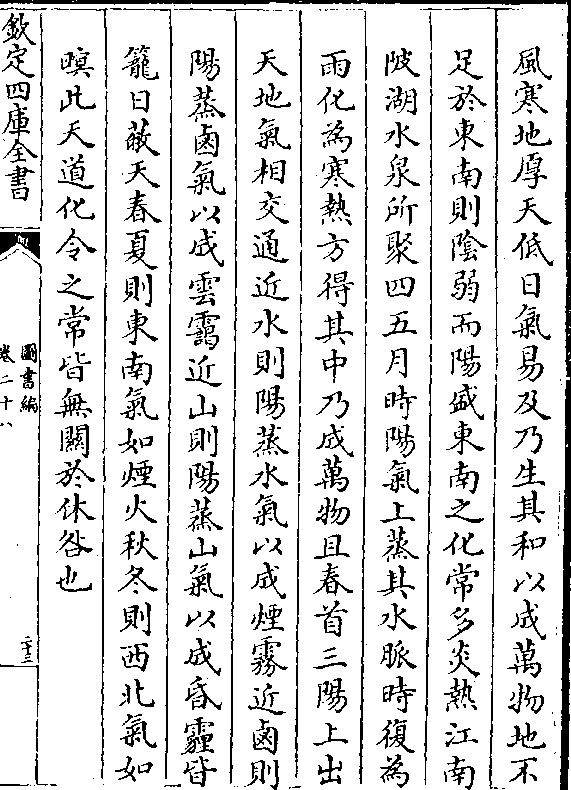 風寒地厚天低日氣易及乃生其和以成萬物地不
足於東南則陰弱而陽盛東南之化常多炎熱江南
陂湖水泉所聚四五月時陽氣上蒸其水脈時復為
雨化為寒熱方得其中乃成萬物且春首三陽上出
天地氣相交通近水則陽蒸水氣以成煙霧近鹵則
陽蒸鹵氣以成雲靄近山則陽蒸山氣以成昏霾皆
籠日蔽天春夏則東南氣如煙火秋冬則西北氣如
暝此天道化令之常皆無關於休咎也
欽定四庫全書
圖書編
卷二十八
二十三